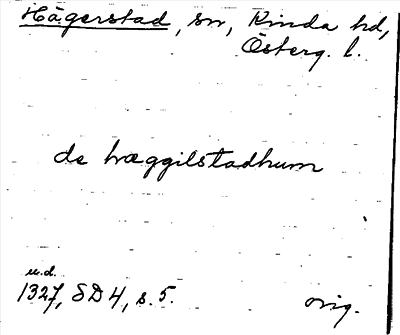 Hägerstad, sn, Kinda hd,
Österg. l.
de hæggilstadhum
u.d.
1327, SD 4, s. 5.
orig.